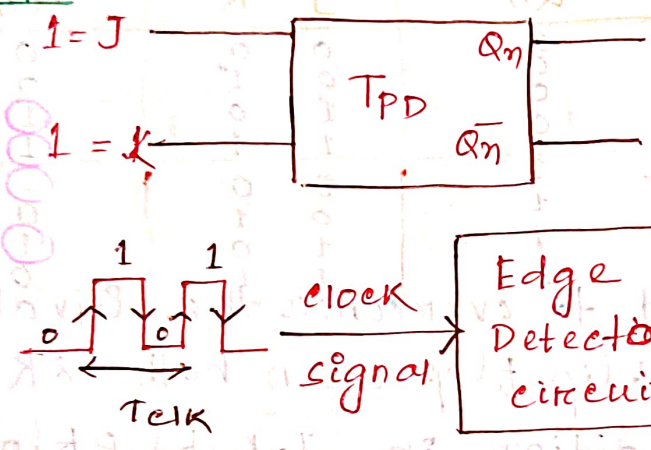 1 = J
Qn
TPD
1 = K
Q̅n̅
1 1
0 0
TClK
clock
signal
Edge
Detecto
circui